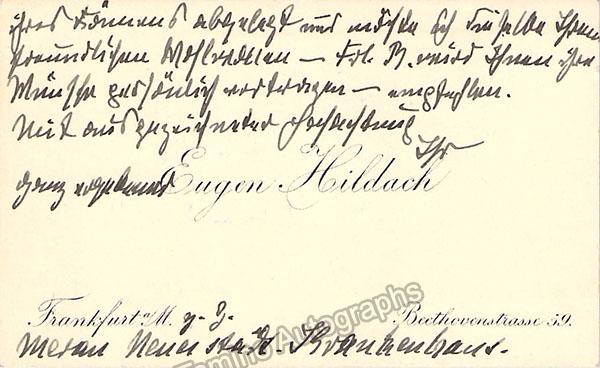 ihres Könnens abgelegt und möchte ich dieselbe Ihrem
freundlichen Wohlwollen – Frl. B. wird Ihnen ihre
Wünsche persönlich vortragen – empfehlen.
Mit ausgezeichneter Hochachtung
Ihr
ganz ergebener Eugen Hildach
Frankfurt a/M. z. Z. Beethovenstrasse 59.
Meran Neues städt. Krankenhaus.
Tamino Autographs